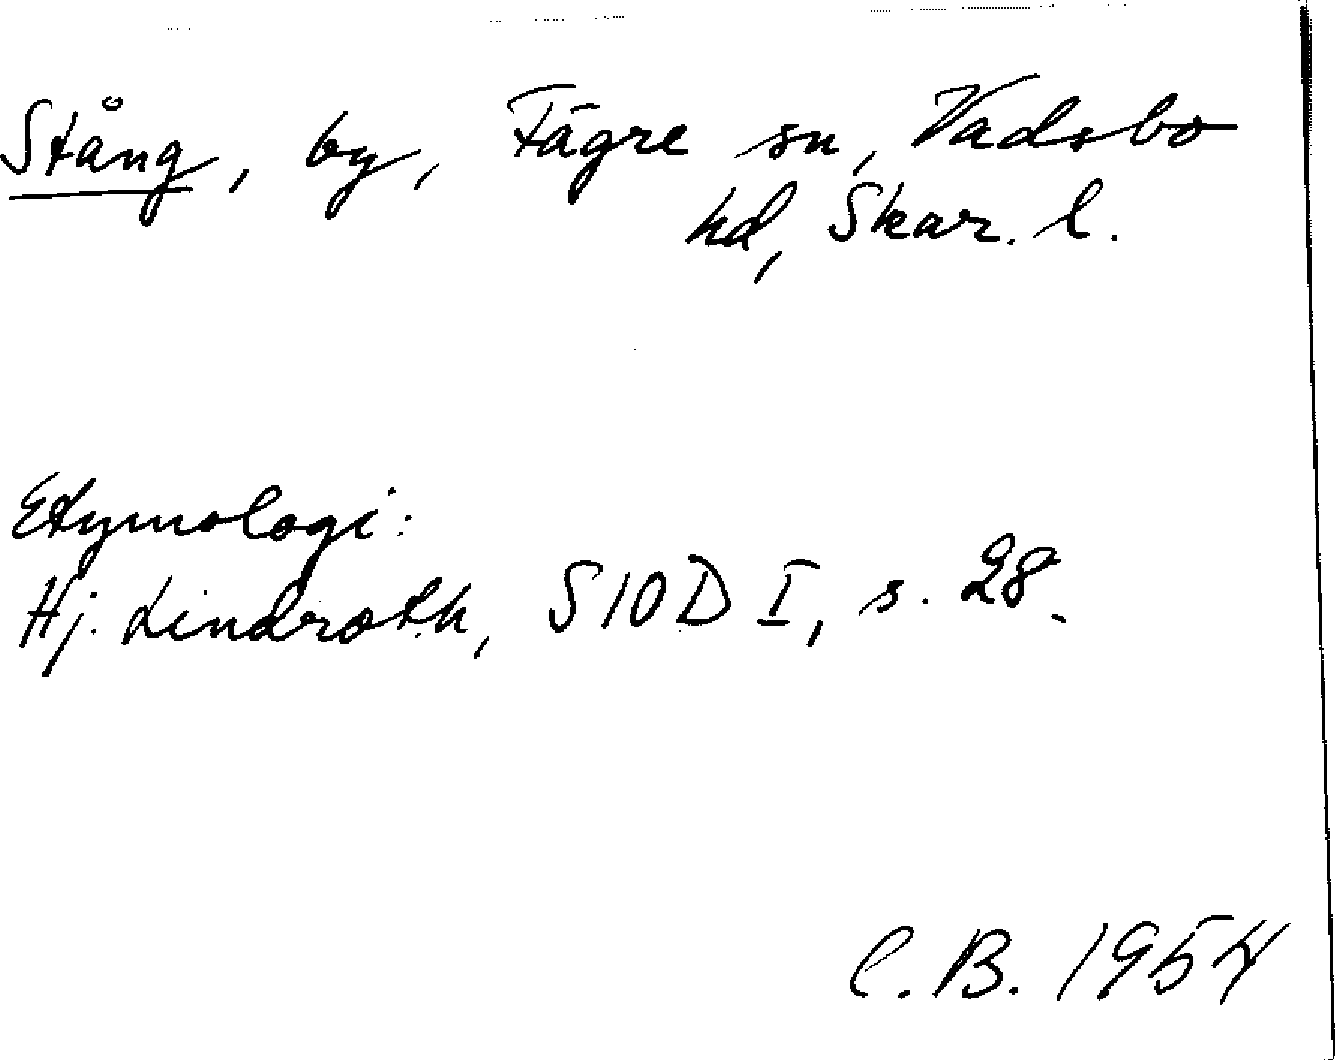 Stång, by, Fägre sn, Vadsbo
hd, Skar. l.
Etymologi:
Hj. Lindroth, SIOD I, s. 28.
C.B. 1954